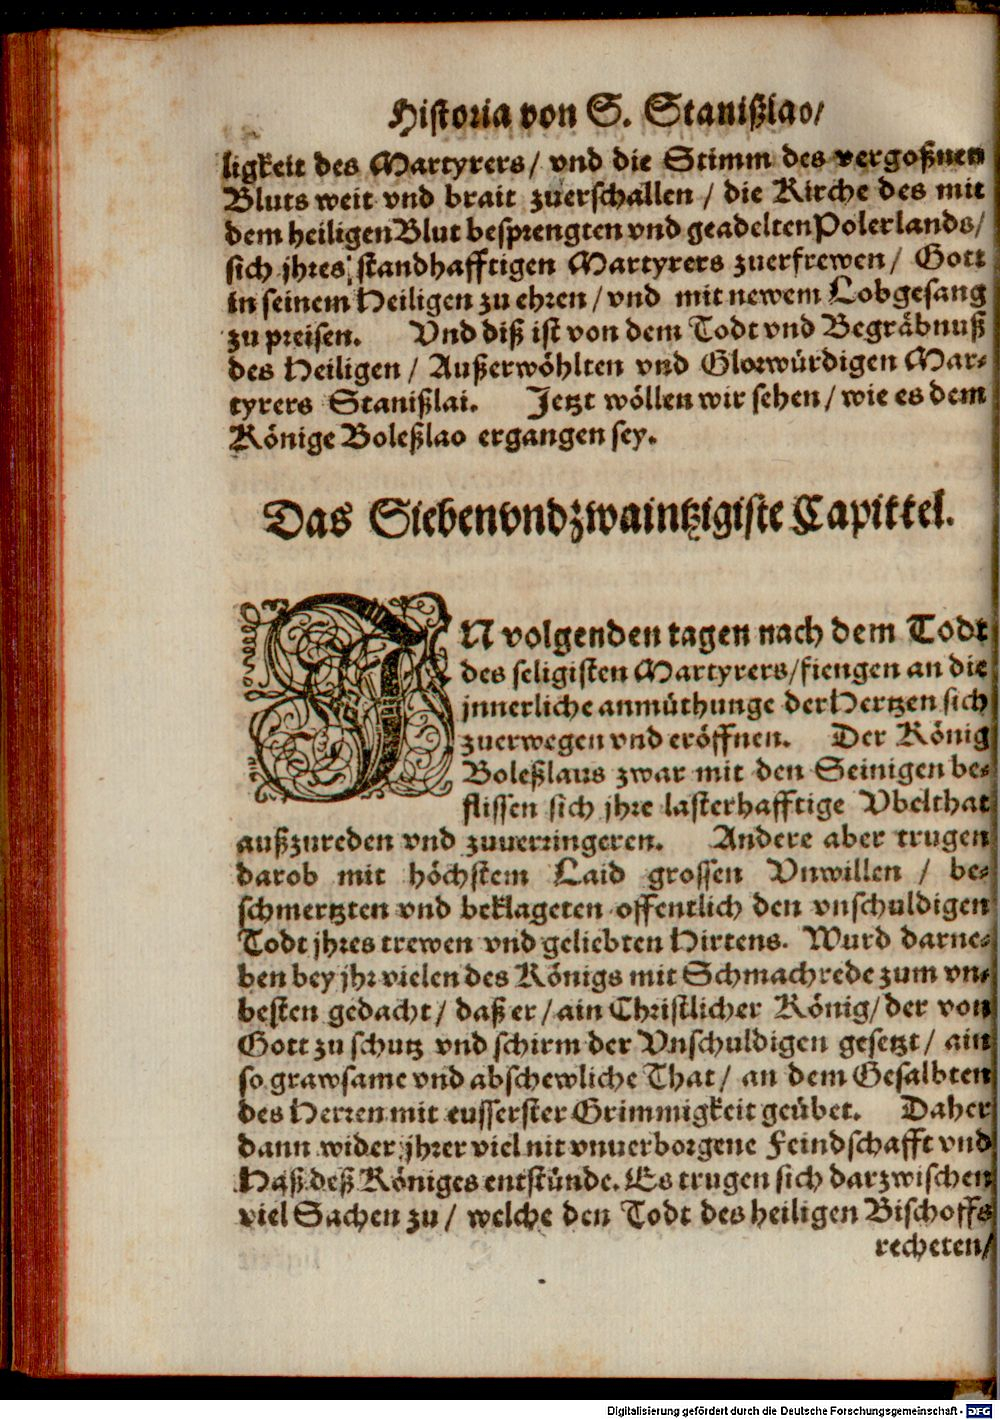 Historia von S. Stanißlao/
ligkeit des Martyrers/ vnd die Stimm des vergoßnen
Bluts weit vnd brait zuerschallen / die Kirche des mit
dem heiligen Blut besprengten vnd geadelten Polerlands/
sich jhres standhafftigen Martyrers zuerfrewen/ Gott
in seinem Heiligen zu ehren / vnd mit newem Lobgesang
zu preisen. Vnd diß ist von dem Todt vnd Begräbnuß
des Heiligen / Außerwöhlten vnd Glorwürdigen Mar-
tyrers Stanißlai. Jetzt wöllen wir sehen / wie es dem
Könige Boleßlao ergangen sey.
Das Siebenvndzwaintzigiste Capittel.
IN volgenden tagen nach dem Todt
des seligisten Martyrers/ fiengen an die
jnnerliche anmüthunge der Hertzen sich
zuerwegen vnd eröffnen. Der König
Boleßlaus zwar mit den Seinigen be-
flissen sich jhre lasterhafftige Vbelthat
außzureden vnd zuuerringeren. Andere aber trugen
darob mit höchstem Laid grossen Vnwillen / be-
schmertzten vnd beklageten offentlich den vnschuldigen
Todt jhres trewen vnd geliebten Hirtens. Wurd darne-
ben bey jhr vielen des Königs mit Schmachrede zum vn-
besten gedacht / daß er / ain Christlicher König/ der von
Gott zu schutz vnd schirm der Vnschuldigen gesetzt / ain
so grawsame vnd abschewliche That / an dem Gesalbten
des Herren mit eusserster Grimmigkeit geübet. Daher
dann wider jhrer viel nit vnuerborgene Feindschafft vnd
Haß deß Königes entstünde. Es trugen sich darzwischen
viel Sachen zu / welche den Todt des heiligen Bischoffs
recheten/
Digitalisierung gefördert durch die Deutsche Forschungsgemeinschaft - DFG